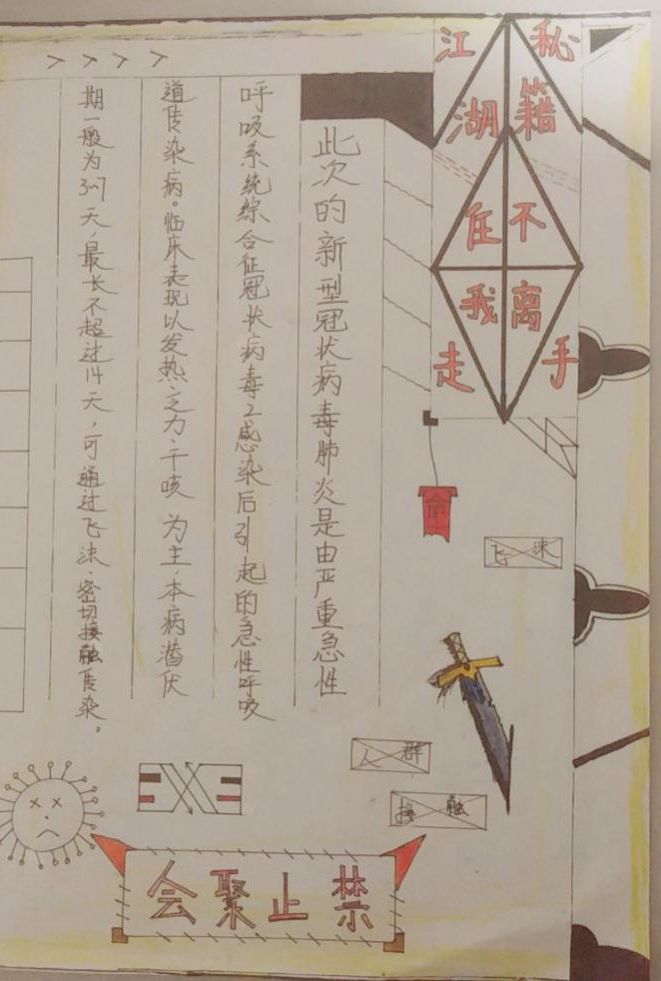 秘籍不离手
江湖任我走
此次的新型冠状病毒肺炎是由严重急性
呼吸系统综合征冠状病毒2感染后引起的急性呼吸
道传染病。临床表现以发热、乏力、干咳为主,本病潜伏
期一般为3~7天,最长不超过14天,可通过飞沫、密切接触传染。
飞沫
人群
接触
禁止聚会